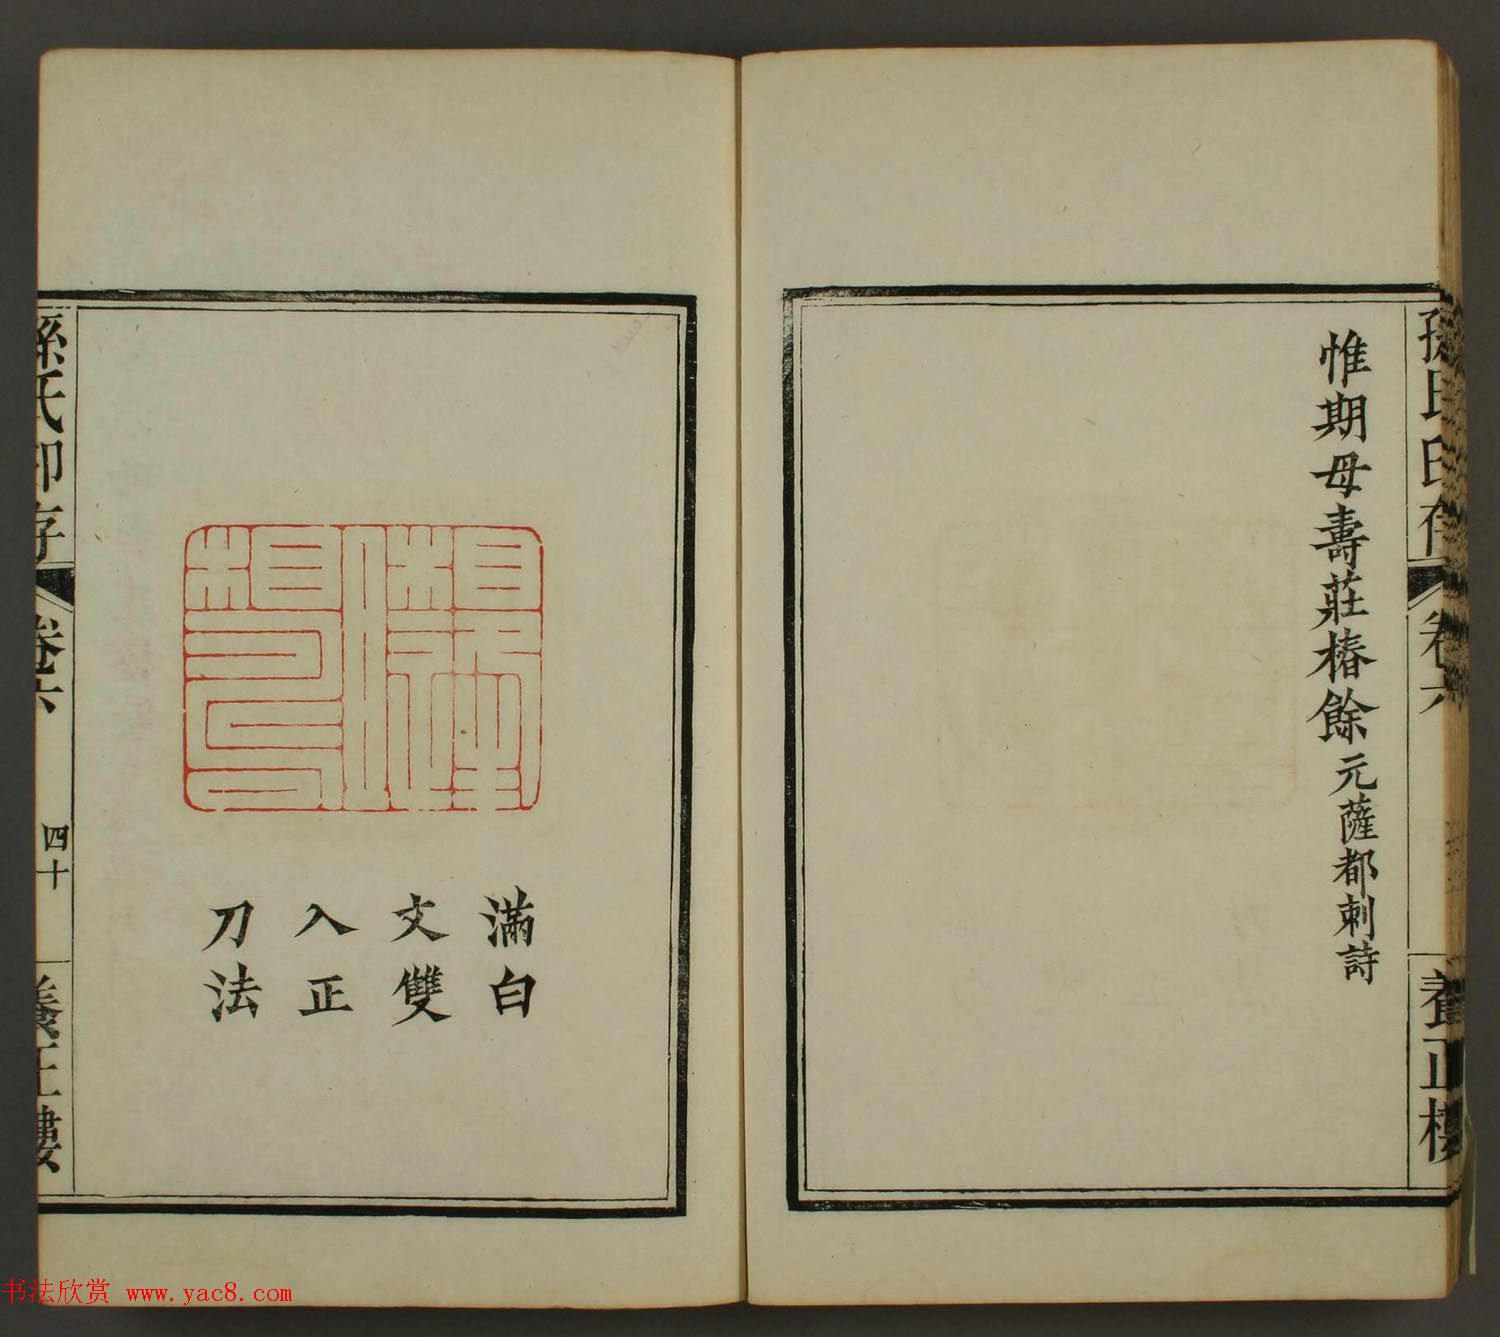 孫氏印存
卷六
養正樓
惟期母壽莊椿餘元薩都刺詩
滿白
文雙
入正
刀法
孫氏印存
卷六
四十
養正樓
书法欣赏 www.yac8.com